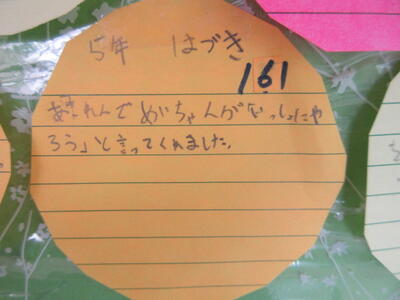 5年 はづき
161
れんでめいちゃんがいっしょにや
ろう」と言ってくれました。